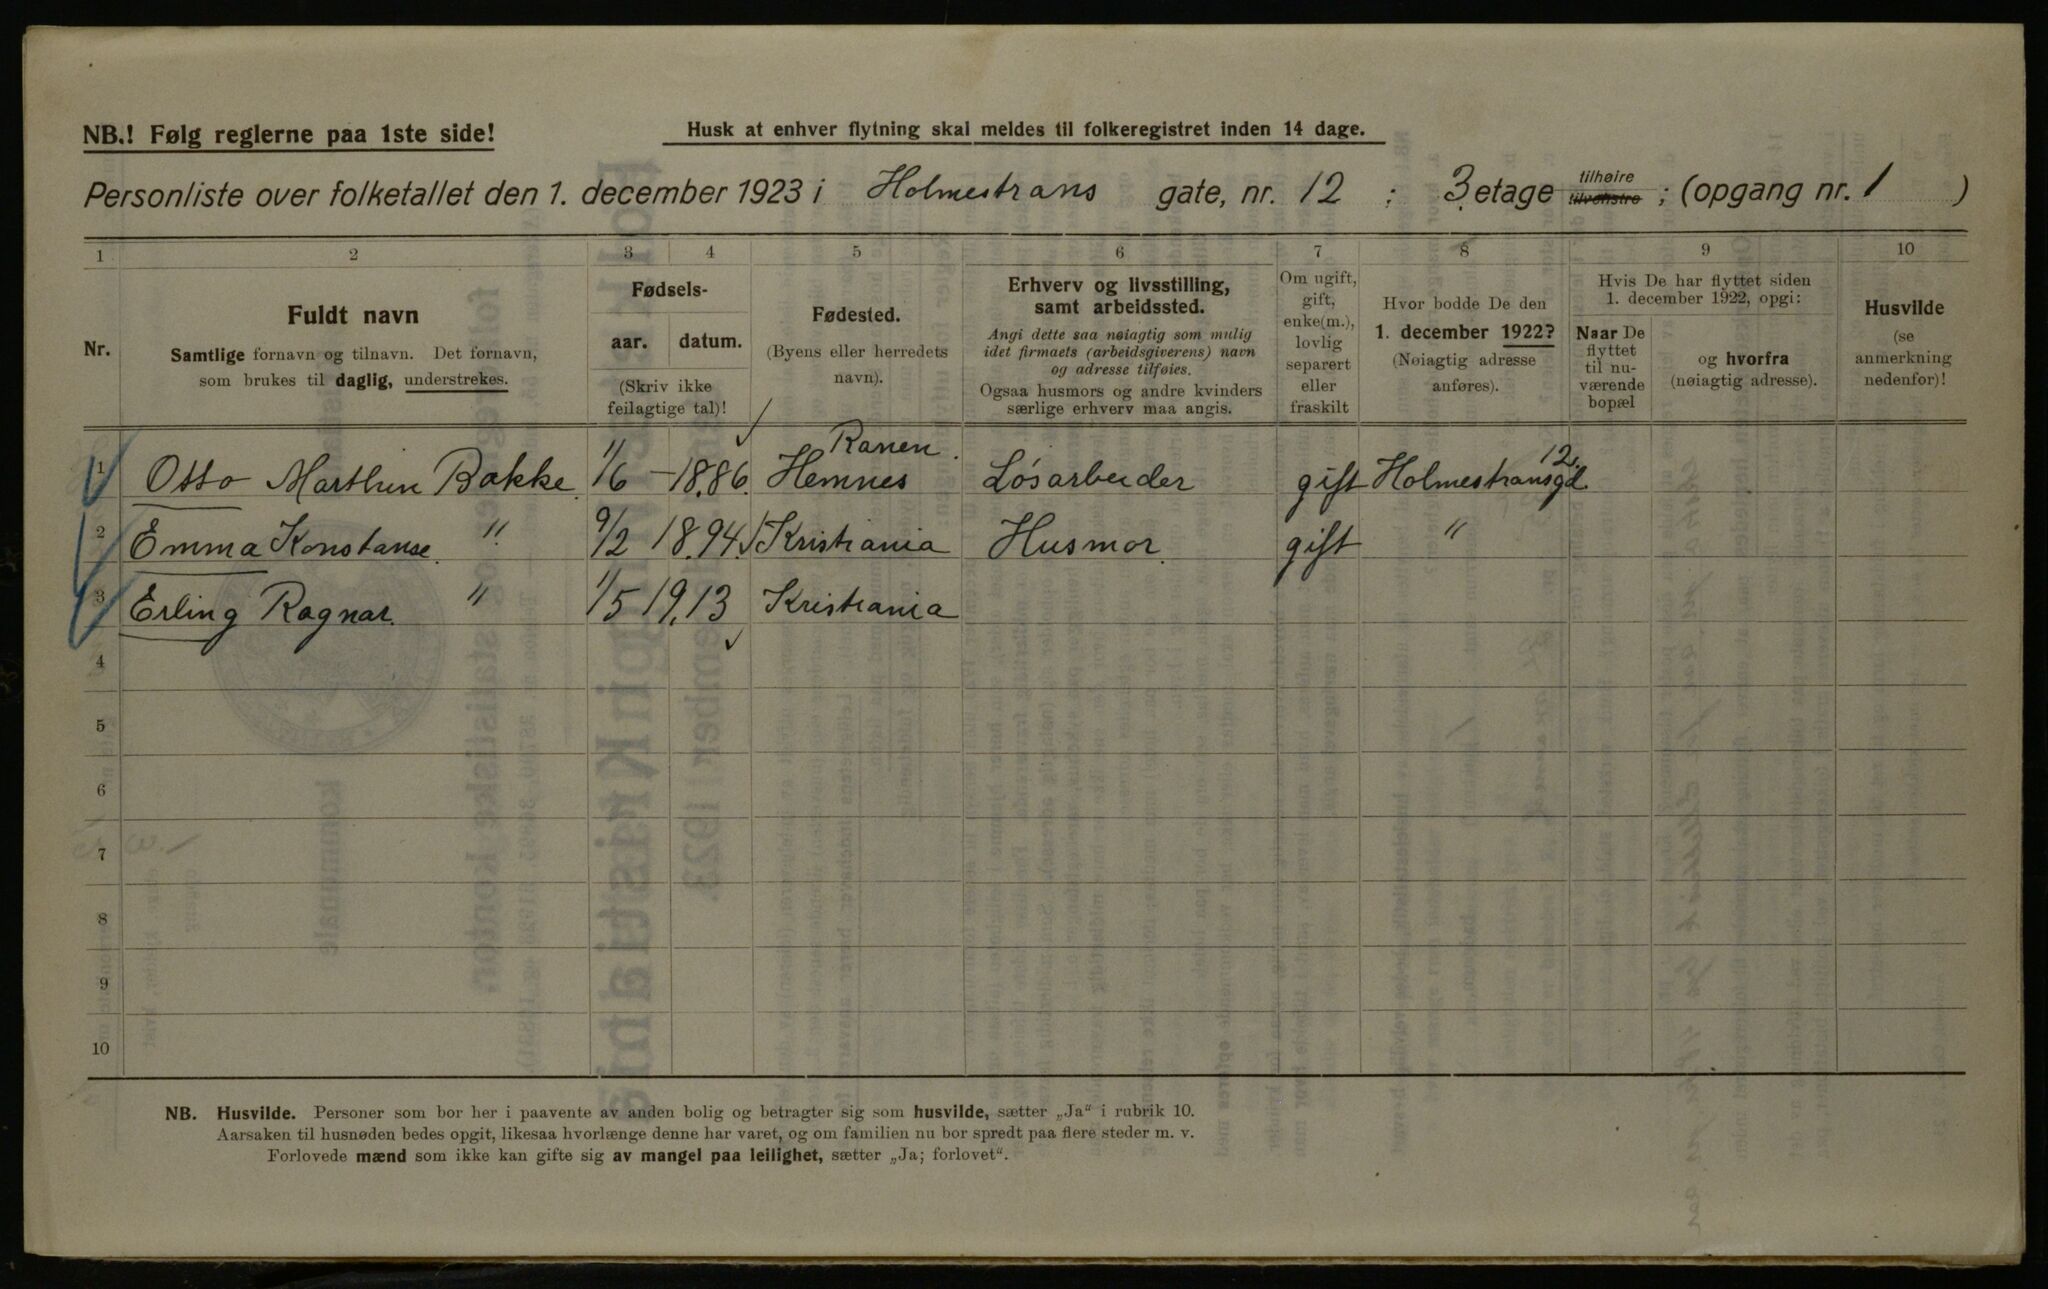 NB.! Følg reglerne paa 1ste side!
Husk at enhver flytning skal meldes til folkeregistret inden 14 dage.
Personliste over folketallet den 1. december 1923 i Holmestrans gate, nr. 12 ; 3 etage tilhøire tilvenstre ; (opgang nr. 1 )
1 2 3 4 5 6 7 8 9 10
Nr.
Fuldt navn
Samtlige fornavn og tilnavn. Det fornavn,
som brukes til daglig, understrekes.
Fødsels-
aar. datum.
(Skriv ikke
feilagtige tal)!
Fødested.
(Byens eller herredets
navn).
Erhverv og livsstilling,
samt arbeidssted.
Angi dette saa nøiagtig som mulig
idet firmaets (arbeidsgiverens) navn
og adresse tilføies.
Ogsaa husmors og andre kvinders
særlige erhverv maa angis.
Om ugift,
gift,
enke(m.),
lovlig
separert
eller
fraskilt
Hvor bodde De den
1. december 1922?
(Nøiagtig adresse
anføres).
Hvis De har flyttet siden
1. december 1922, opgi:
Naar De
flyttet
til nu-
værende
bopæl
og hvorfra
(nøiagtig adresse).
Husvilde
(se
anmerkning
nedenfor)!
Ranen. 12.
1 Otto Marthin Bakke. 1/6 - 18.86. Hemnes Løsarbeider gift Holmestransgd.
2 Emma Konstanse. " 9/2 18.94. Kristiania Husmor. gift "
3 Erling Ragnar. " 1/5 19.13 Kristiania
4
5
6
7
8
9
10
NB. Husvilde. Personer som bor her i paavente av anden bolig og betragter sig som husvilde, sætter „Ja“ i rubrik 10.
Aarsaken til husnøden bedes opgit, likesaa hvorlænge denne har varet, og om familien nu bor spredt paa flere steder m. v.
Forlovede mænd som ikke kan gifte sig av mangel paa leilighet, sætter „Ja; forlovet“.